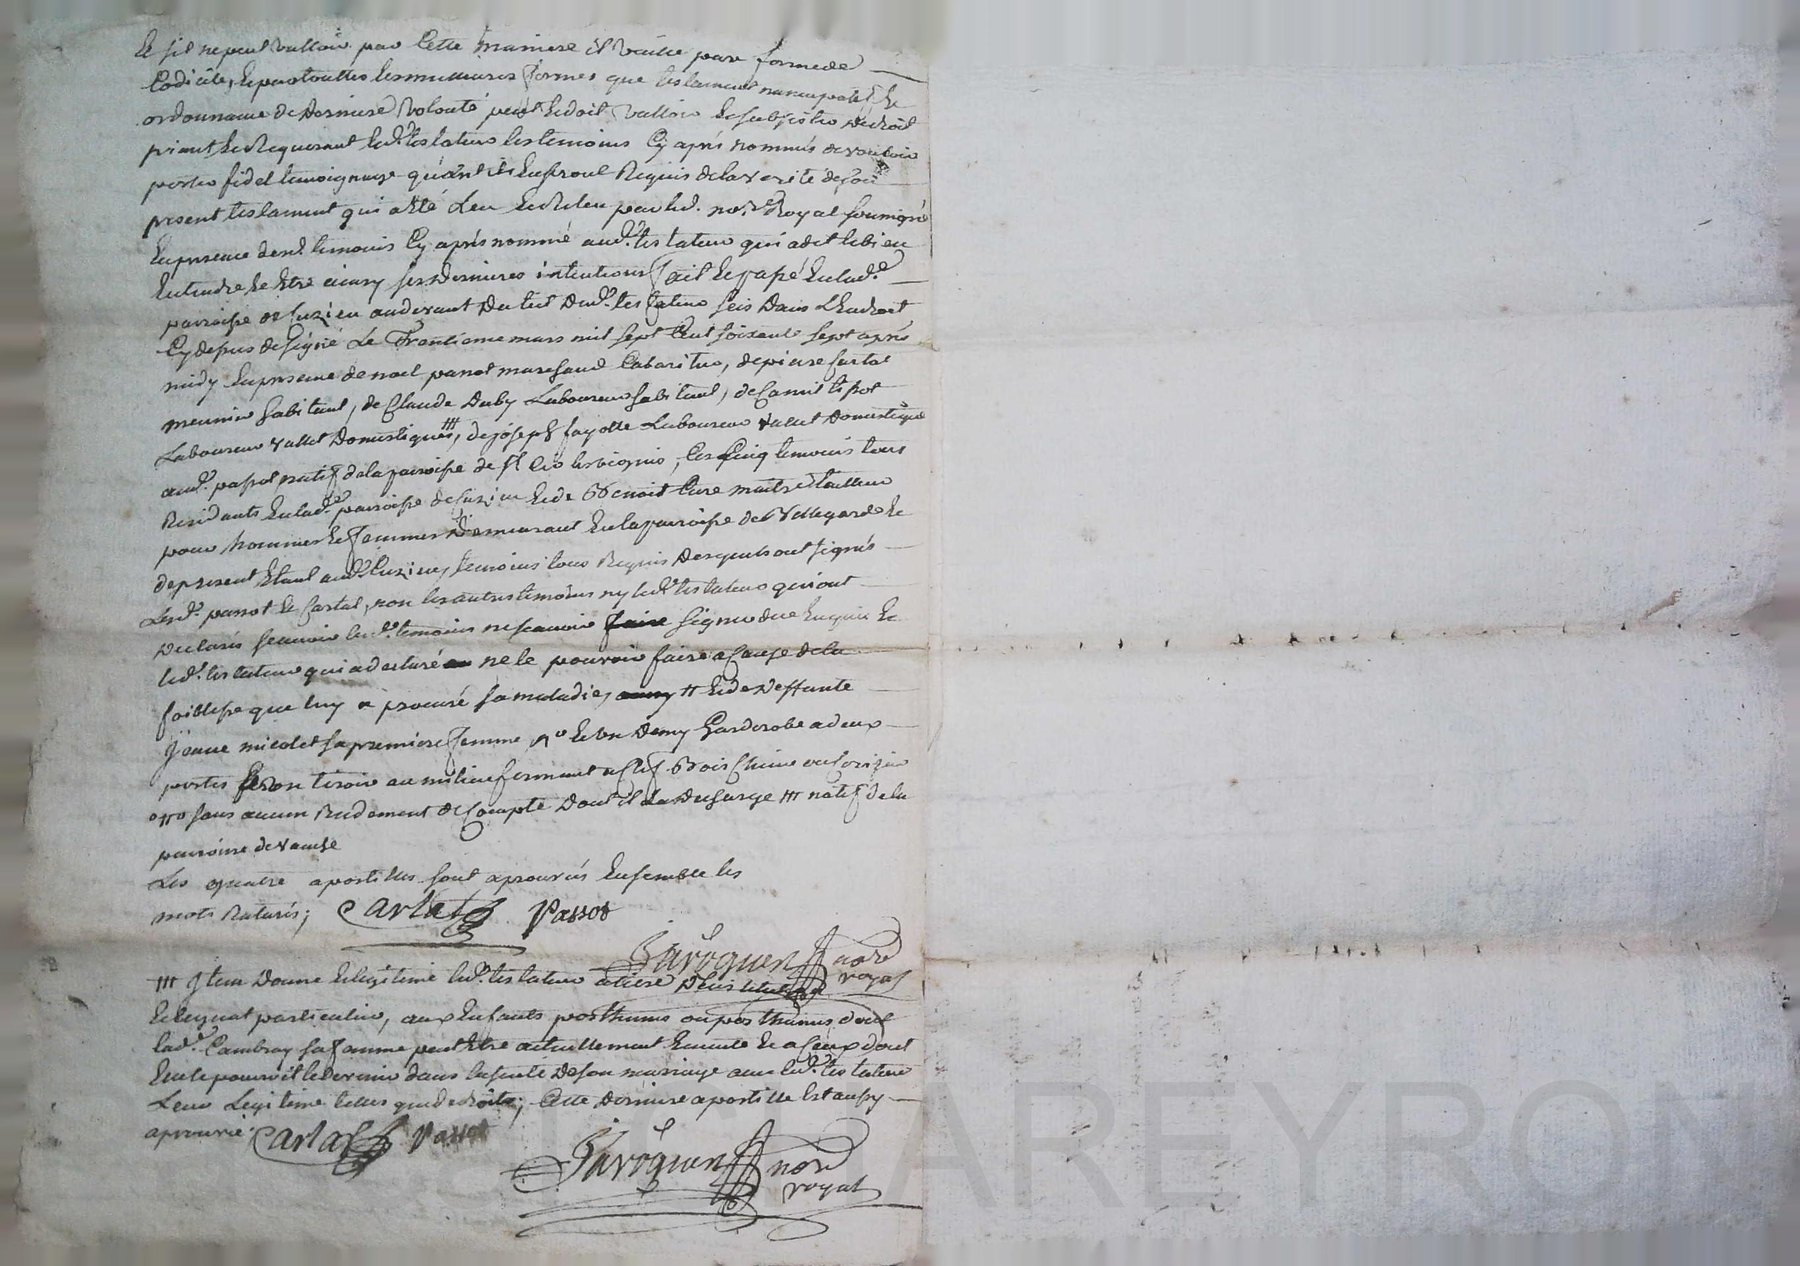 Et s'il ne peut valloir par cette maniere il vaille par forme de
Codicile, et par touttes les meilleures formes que testament nuncupatif et
ordonnance de derniere volonté peut et doit valloir et subsister de droit
priant et requerant led. testateur les temoins cy après nommés de vouloir
porter fidel temoignage quant ils en seront requis de la verité de son
present testament qui a eté leu et releu par led. no.re Royal soussigné
en presence desd. temoins cy après nommé aud. testateur qui a dit le bien
entendre et etre ainsy ses dernieres intentions fait et passé en lad.e
paroisse de suzieu au devant du lict dud. testateur scis dans l'endroit
cy depus designé le trentieme mars mil sept cent soixante sept après
midy en presence de noel passot marchand cabaritier, de pierre carlat
meunier habitant, de Claude Duby Laboureur habitant, de
Laboureur vallet domestique ///, de joseph fayolle Laboureur vallet domestique
aud. passot natif de la paroisse de st , les cinq temoins tous
Residants en lad.e paroisse de suzieu et de Benoit Cure maitre tailleur
pour hommes et femmes demeurant en la paroisse de Bellegarde et
de present etant aud. suzieu, temoins tous requis desquels ont signés
Lesd. passot et Carlat, non les autres temoins ny led. testateur qui ont
declarés sçauoir les d. temoins ne sçauoir faire signer de ce enquis et
led. testateur qui a declaré ne le pouvoir faire a cause de la
foiblesse que luy a procuré sa maladie, // et de deffunte
jeanne micolet sa premiere femme, et un demy garderobe a deux
portes et un tiroir au milieu fermant a clef bois chene ou cerizier
sans aucun rendement de compte dont il la decharge /// natif de la
paroisse de
Les quatre apostilles sont aprouvés ensemble les
mots raturés; Carlat Passot
nore
royal
/// Item donne et legitime led. testateur a titre d'institution
et legat particulier, aux enfants posthumes ou posthumes dont
lad.e Cambray sa femme peut etre actuellement enceinte et a ceux dont
elle pourroit le devenir dans la suite de son mariage avec led. testateur
Leur Legitime telles que de droits; cette derniere apostille est aussy
aprouvé. Carlat Passot
nore
royal
AREYRON